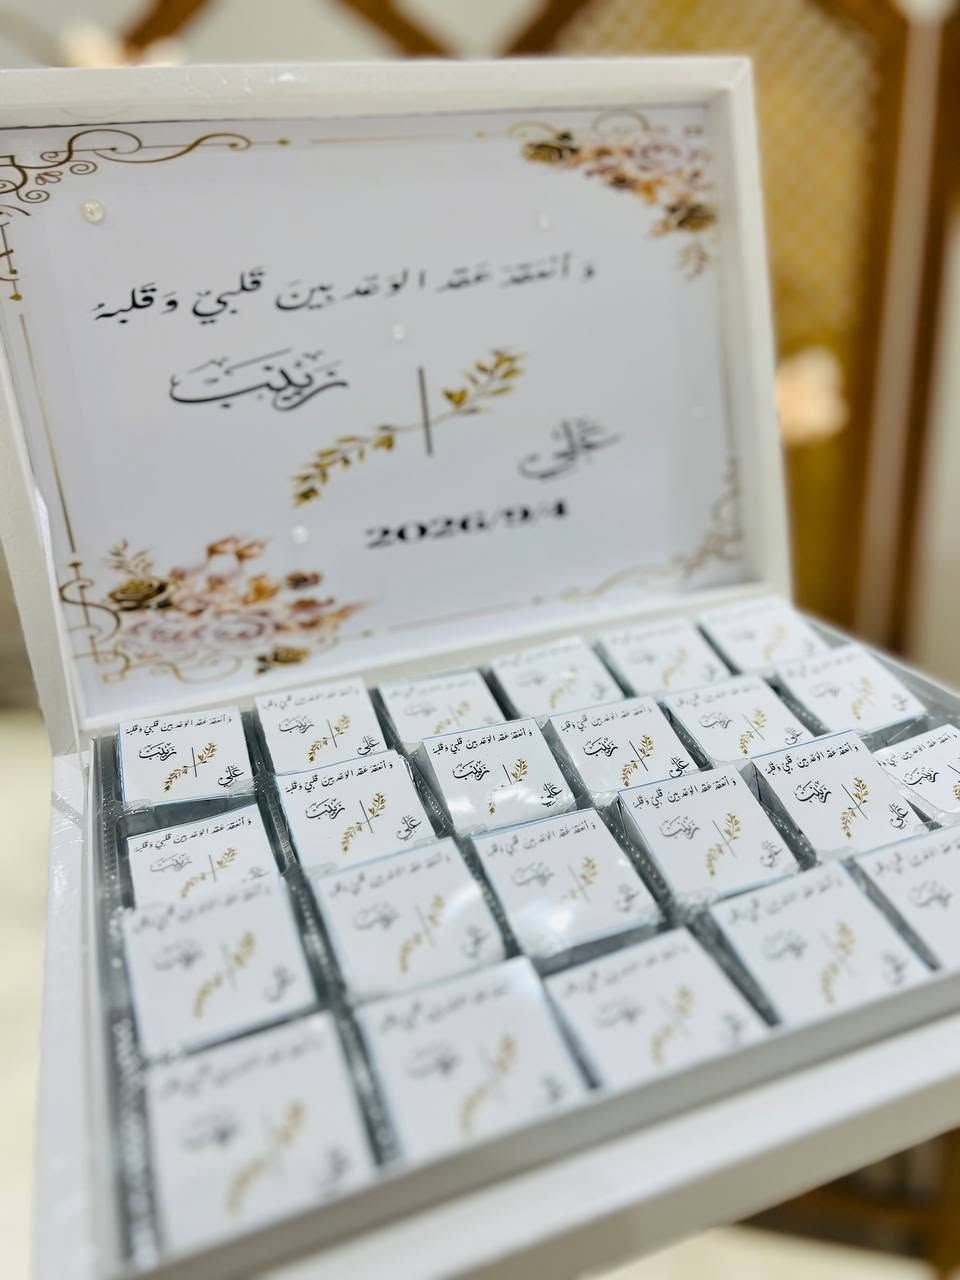 وَ أنعَقدَ عَقد الوَعد بينَ قَلبيّ وَقَلبهُ
زَيْنَبْ
عَلَي
2026/9/4
وَ أنعَقدَ عَقد الوَعد بينَ قَلبيّ وَقَلبهُ
زَيْنَبْ
عَلَي